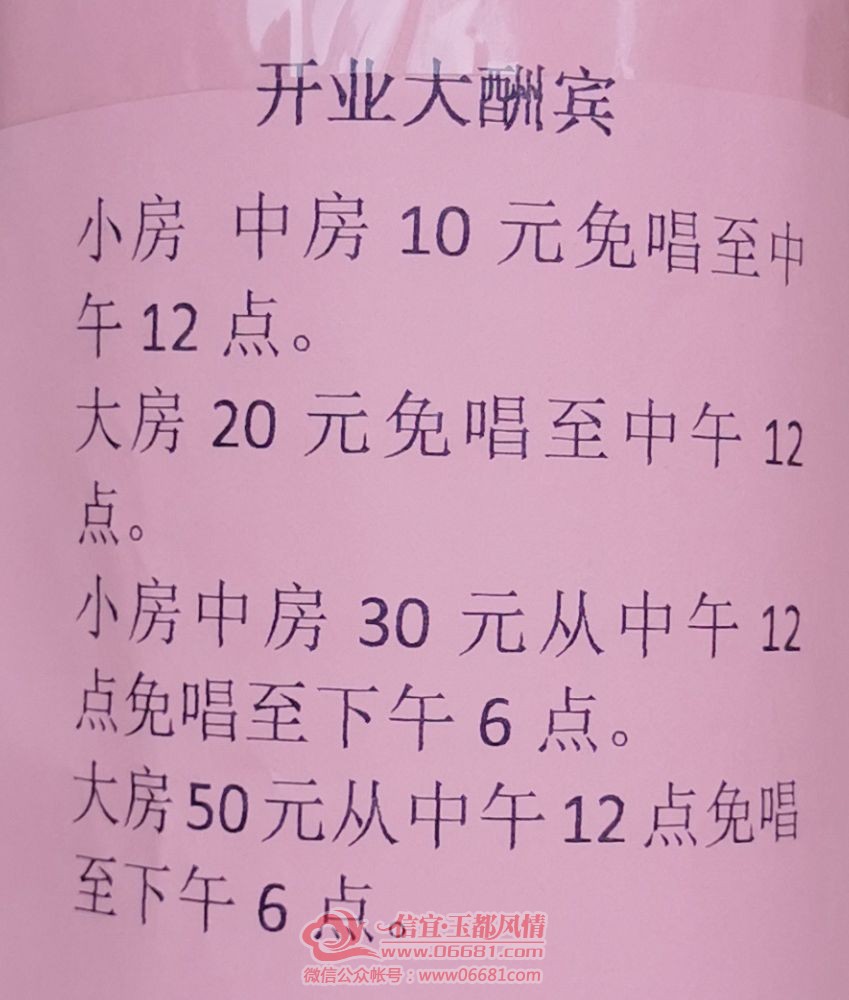 开业大酬宾
小房 中房 10 元免唱至中
午 12 点。
大房 20 元免唱至中午 12
点。
小房中房 30 元从中午 12
点免唱至下午 6 点。
大房 50 元从中午 12 点免唱
至下午 6 点。
信宜·玉都风情
www.06681.com
微信公众帐号：www06681com